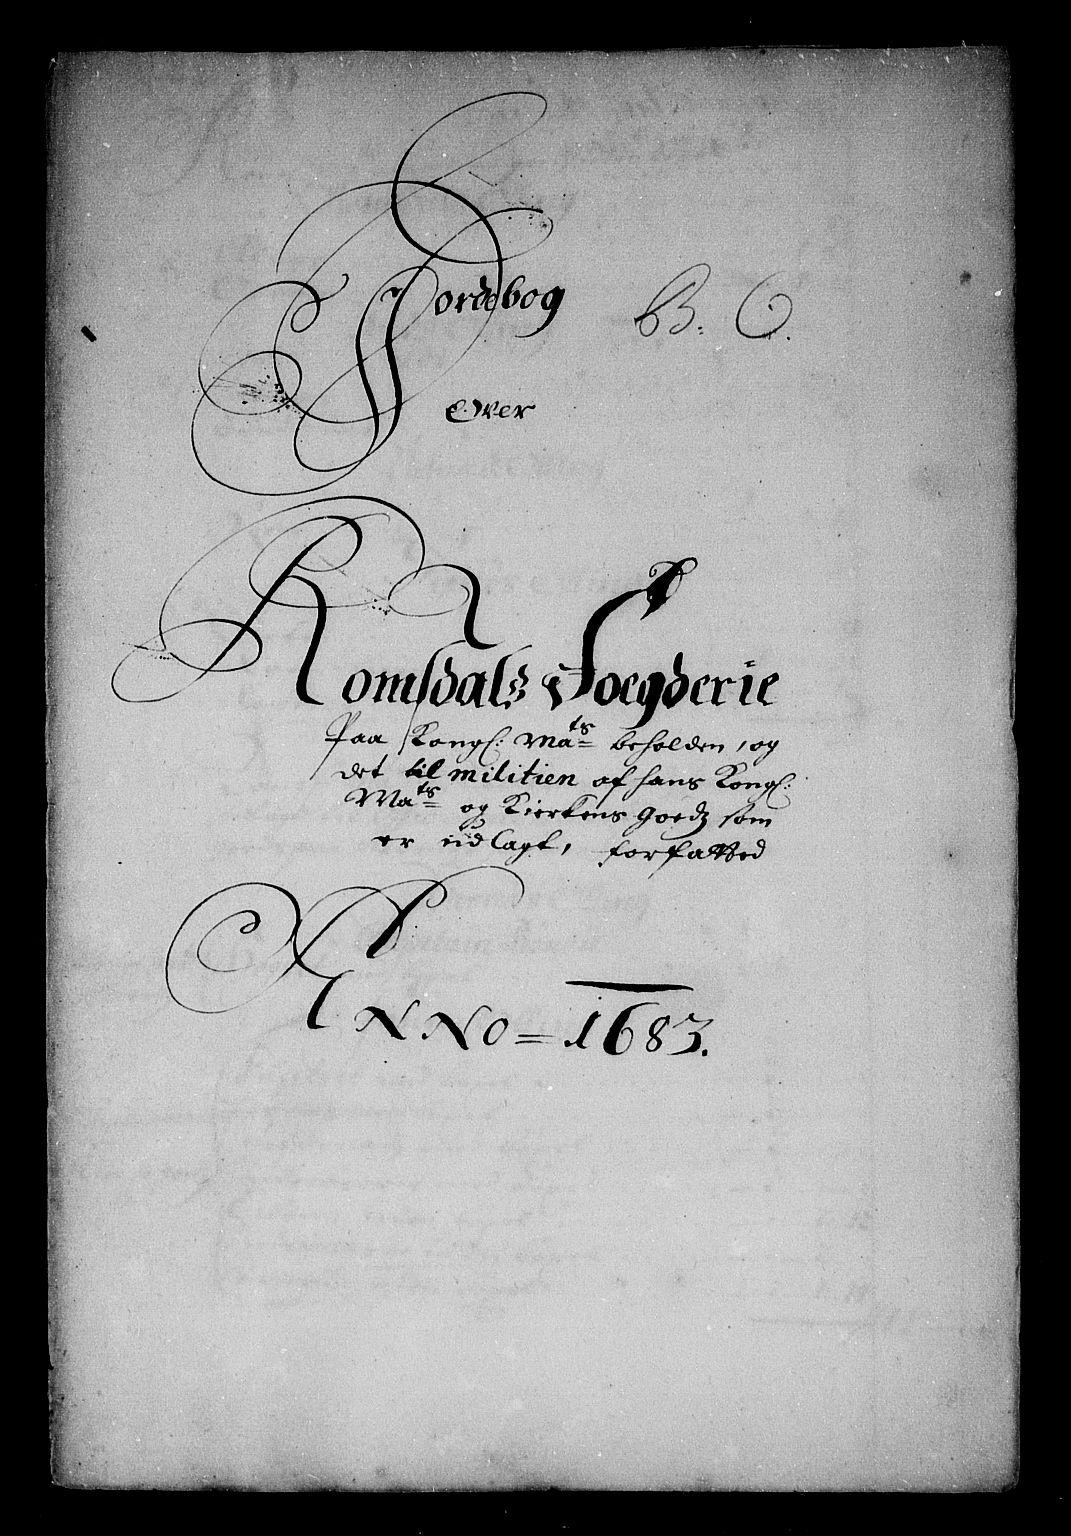 Jordebog B. C.
Over
Romsdals Foegderie
Paa Kongl: Ma^ts beholden, og
det til militien af hans Kongl:
Ma^ts og Kierkens goedz som
er üdlagt, forfatted
ANNO = 1683.